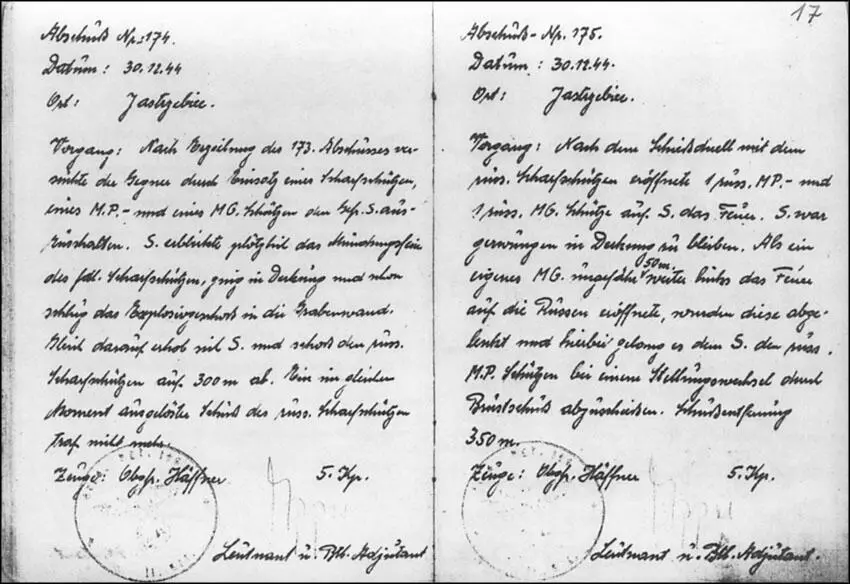 17
Abschuß Nr.: 174.
Datum : 30.12.44
Ort : Jastrgebiee.
Vorgang : Nach Erzielung des 173. Abschusses ver-
suchte der Gegner durch Einsatz eines Scharfschützen,
eines M.P.- und eines MG. Schützen den Gefr. S. aus-
zuschalten. S. erblickte plötzlich das
des fdl. Scharfschützen, ging in Deckung und schon
schlug das Explosivgeschoß in die Grabenwand.
Gleich darauf erhob sich S. und schoß den russ.
Scharfschützen auf 300 m ab. Ein im gleichen
Moment ausgelöster Schuß des russ. Scharfschützen
traf nicht mehr.
Zeuge : Obgfr. Häffner 5. Kp.
Leutnant u. Btl. Adjutant
Abschuß - Nr. 175.
Datum : 30.12.44.
Ort : Jastrgebiee.
Vorgang : Nach dem Schießduell mit dem
russ. Scharfschützen eröffnete 1 russ. MP.- und
1 russ. MG. Schütze auf S. das Feuer. S. war
gezwungen in Deckung zu bleiben. Als ein
eigenes MG. ungefähr 50 m. weiter links das Feuer
auf die Russen eröffnete, wurden diese abge-
lenkt und hierbei gelang es dem S. den russ.
M.P. Schützen bei einem Stellungswechsel durch
Brustschuß abzuschießen. Schußentfernung
350 m.
Zeuge : Obgfr. Häffner 5. Kp.
Leutnant u. Btl. Adjutant.